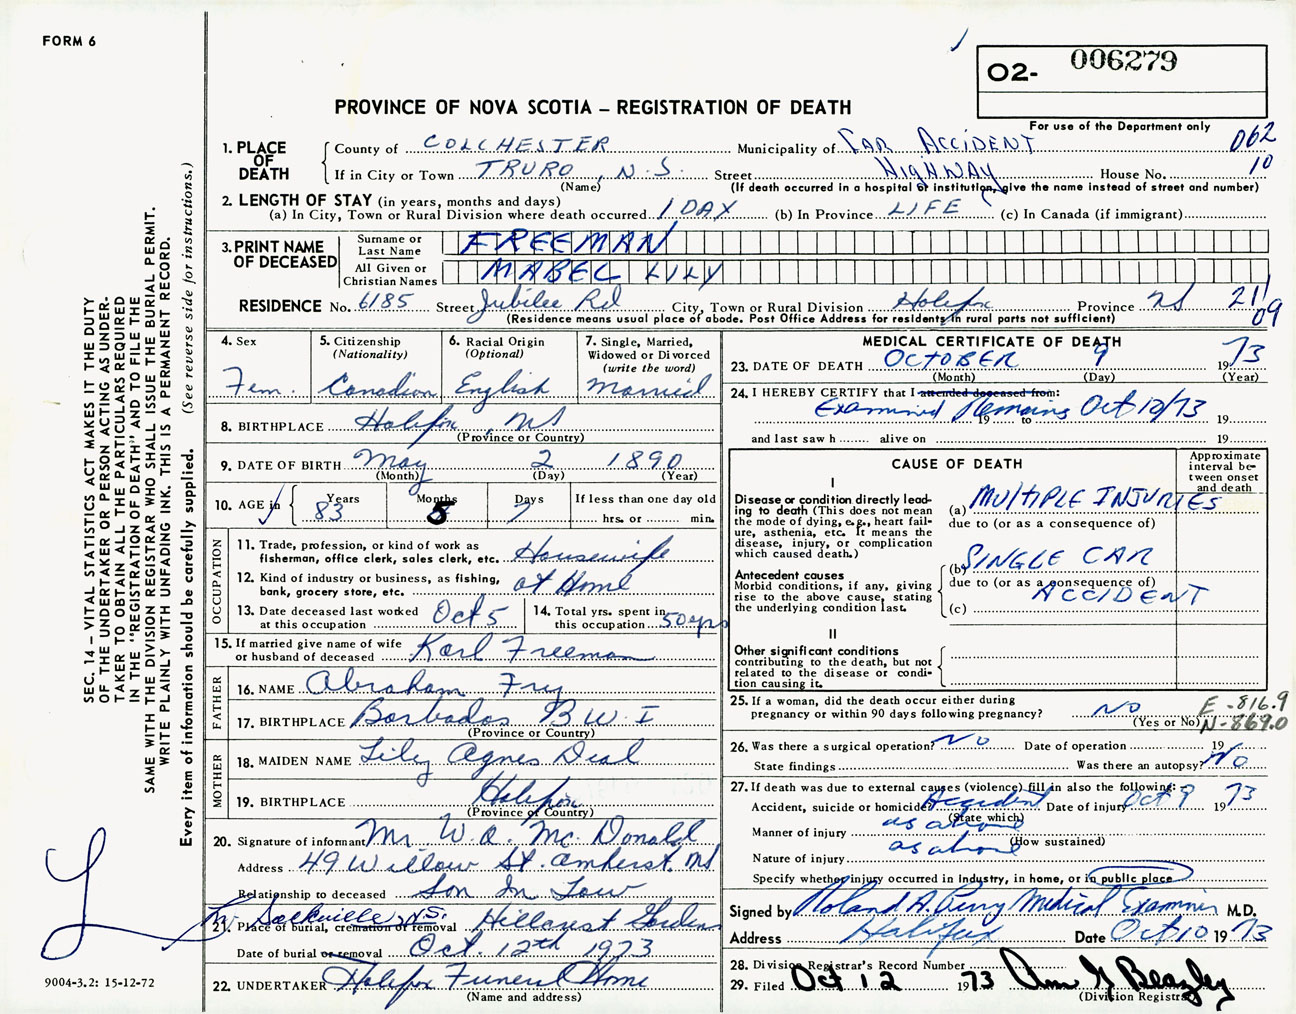 FORM 6
O2- 006279
PROVINCE OF NOVA SCOTIA – REGISTRATION OF DEATH
For use of the Department only
1. PLACE OF DEATH
County of COLCHESTER Municipality of CAR ACCIDENT 062
If in City or Town TRURO, N.S. Street HIGHWAY House No. 10
(Name) (If death occurred in a hospital or institution, give the name instead of street and number)
2. LENGTH OF STAY (in years, months and days)
(a) In City, Town or Rural Division where death occurred 1 DAY (b) In Province LIFE (c) In Canada (if immigrant)
3. PRINT NAME OF DECEASED
Surname or Last Name FREEMAN
All Given or Christian Names MABEL LILY
RESIDENCE No. 6185 Street Jubilee Rd City, Town or Rural Division Halifax Province NS 211 09
(Residence means usual place of abode. Post Office Address for residents in rural parts not sufficient)
4. Sex Fem.
5. Citizenship (Nationality) Canadian
6. Racial Origin (Optional) English
7. Single, Married, Widowed or Divorced (write the word) Married
8. BIRTHPLACE Halifax NS
(Province or Country)
9. DATE OF BIRTH May 2 1890
(Month) (Day) (Year)
10. AGE in Years 83 Months 5 Days 7 If less than one day old
hrs. or min.
OCCUPATION
11. Trade, profession, or kind of work as fisherman, office clerk, sales clerk, etc. Housewife
12. Kind of industry or business, as fishing, bank, grocery store, etc. at Home
13. Date deceased last worked at this occupation Oct 5
14. Total yrs. spent in this occupation 50 yrs
15. If married give name of wife or husband of deceased Karl Freeman
FATHER
16. NAME Abraham Fry
17. BIRTHPLACE Barbados B W I
(Province or Country)
MOTHER
18. MAIDEN NAME Lily Agnes Dial
19. BIRTHPLACE Halifax
(Province or Country)
20. Signature of informant Mr. W. A. Mc Donald
Address 49 Willow St. Amherst. NS
Relationship to deceased Son In Law
Sackville N.S.
21. Place of burial, cremation or removal Hillcrest Gardens
Date of burial or removal Oct. 12th 1973
22. UNDERTAKER Halifax Funeral Home
(Name and address)
MEDICAL CERTIFICATE OF DEATH
23. DATE OF DEATH OCTOBER 9 1973
(Month) (Day) (Year)
24. I HEREBY CERTIFY that I attended deceased from:
Examined Remains Oct 10/73
19 to 19
and last saw h alive on 19
CAUSE OF DEATH
Approximate interval between onset and death
I
Disease or condition directly leading to death (This does not mean the mode of dying, e.g., heart failure, asthenia, etc. It means the disease, injury, or complication which caused death.)
(a) MULTIPLE INJURIES
due to (or as a consequence of)
Antecedent causes
Morbid conditions, if any, giving rise to the above cause, stating the underlying condition last.
(b) SINGLE CAR
due to (or as a consequence of)
(c) ACCIDENT
II
Other significant conditions
contributing to the death, but not related to the disease or condition causing it.
25. If a woman, did the death occur either during pregnancy or within 90 days following pregnancy? NO
(Yes or No)
E -816.9
N-869.0
26. Was there a surgical operation? No Date of operation 19
State findings Was there an autopsy? No
27. If death was due to external causes (violence) fill in also the following:
Accident, suicide or homicide? Accident Date of injury Oct 9 1973
(State which)
Manner of injury as above (How sustained)
Nature of injury as above
Specify whether injury occurred in Industry, in home, or in public place
Signed by Roland A. Perry Medical Examiner M.D.
Address Halifax Date Oct 10 1973
28. Division Registrar's Record Number
29. Filed Oct 12 1973 Ann G Beazley
(Division Registrar)
SEC. 14 – VITAL STATISTICS ACT MAKES IT THE DUTY
OF THE UNDERTAKER OR PERSON ACTING AS UNDER-
TAKER TO OBTAIN ALL THE PARTICULARS REQUIRED
IN THE "REGISTRATION OF DEATH" AND TO FILE THE
SAME WITH THE DIVISION REGISTRAR WHO SHALL ISSUE THE BURIAL PERMIT.
WRITE PLAINLY WITH UNFADING INK. THIS IS A PERMANENT RECORD.
Every item of information should be carefully supplied. (See reverse side for instructions.)
9004-3.2: 15-12-72